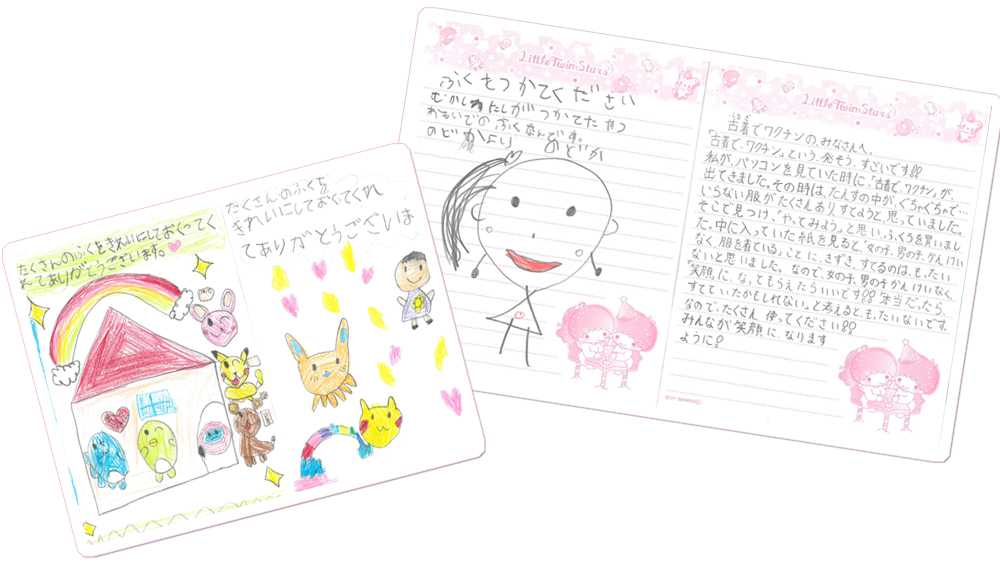 たくさんのふくをきれいにしておくってく
れてありがとうございます。
たくさんのふくを
きれいにしておくてくれ
てありがとうございま
Little Twin Stars
ふくをつかてください
むかしわたしがつかてたやつ
おもいでのふくなんです。
のどかより のどか
Little Twin Stars
古着でワクチンの、みなさんへ、
「古着で、ワクチン」という、発そう、すごいです!!
私が、パソコンを見ていた時に、「古着で、ワクチン」が、
出てきました。その時は、たんすの中が、ぐちゃぐちゃで…
いらない服が、たくさんあり、すてようと、思っていました。
そこで見つけ、「やってみよう。」と思い、ふくろを買いまし
た。中に入っていた紙を見ると、「女の子、男の子、かんけい
なく、服を着ている。」ことに、きずき、すてるのは、もったい
ないと思いました。なので、女の子、男の子かんけいなく、
「笑顔」に、なってもらえたらいいです!!「本当だったら、
すてていたかもしれない。」と考えると、もったいないです。
なので、たくさん使ってください!!
みんなが笑顔になります
ように!